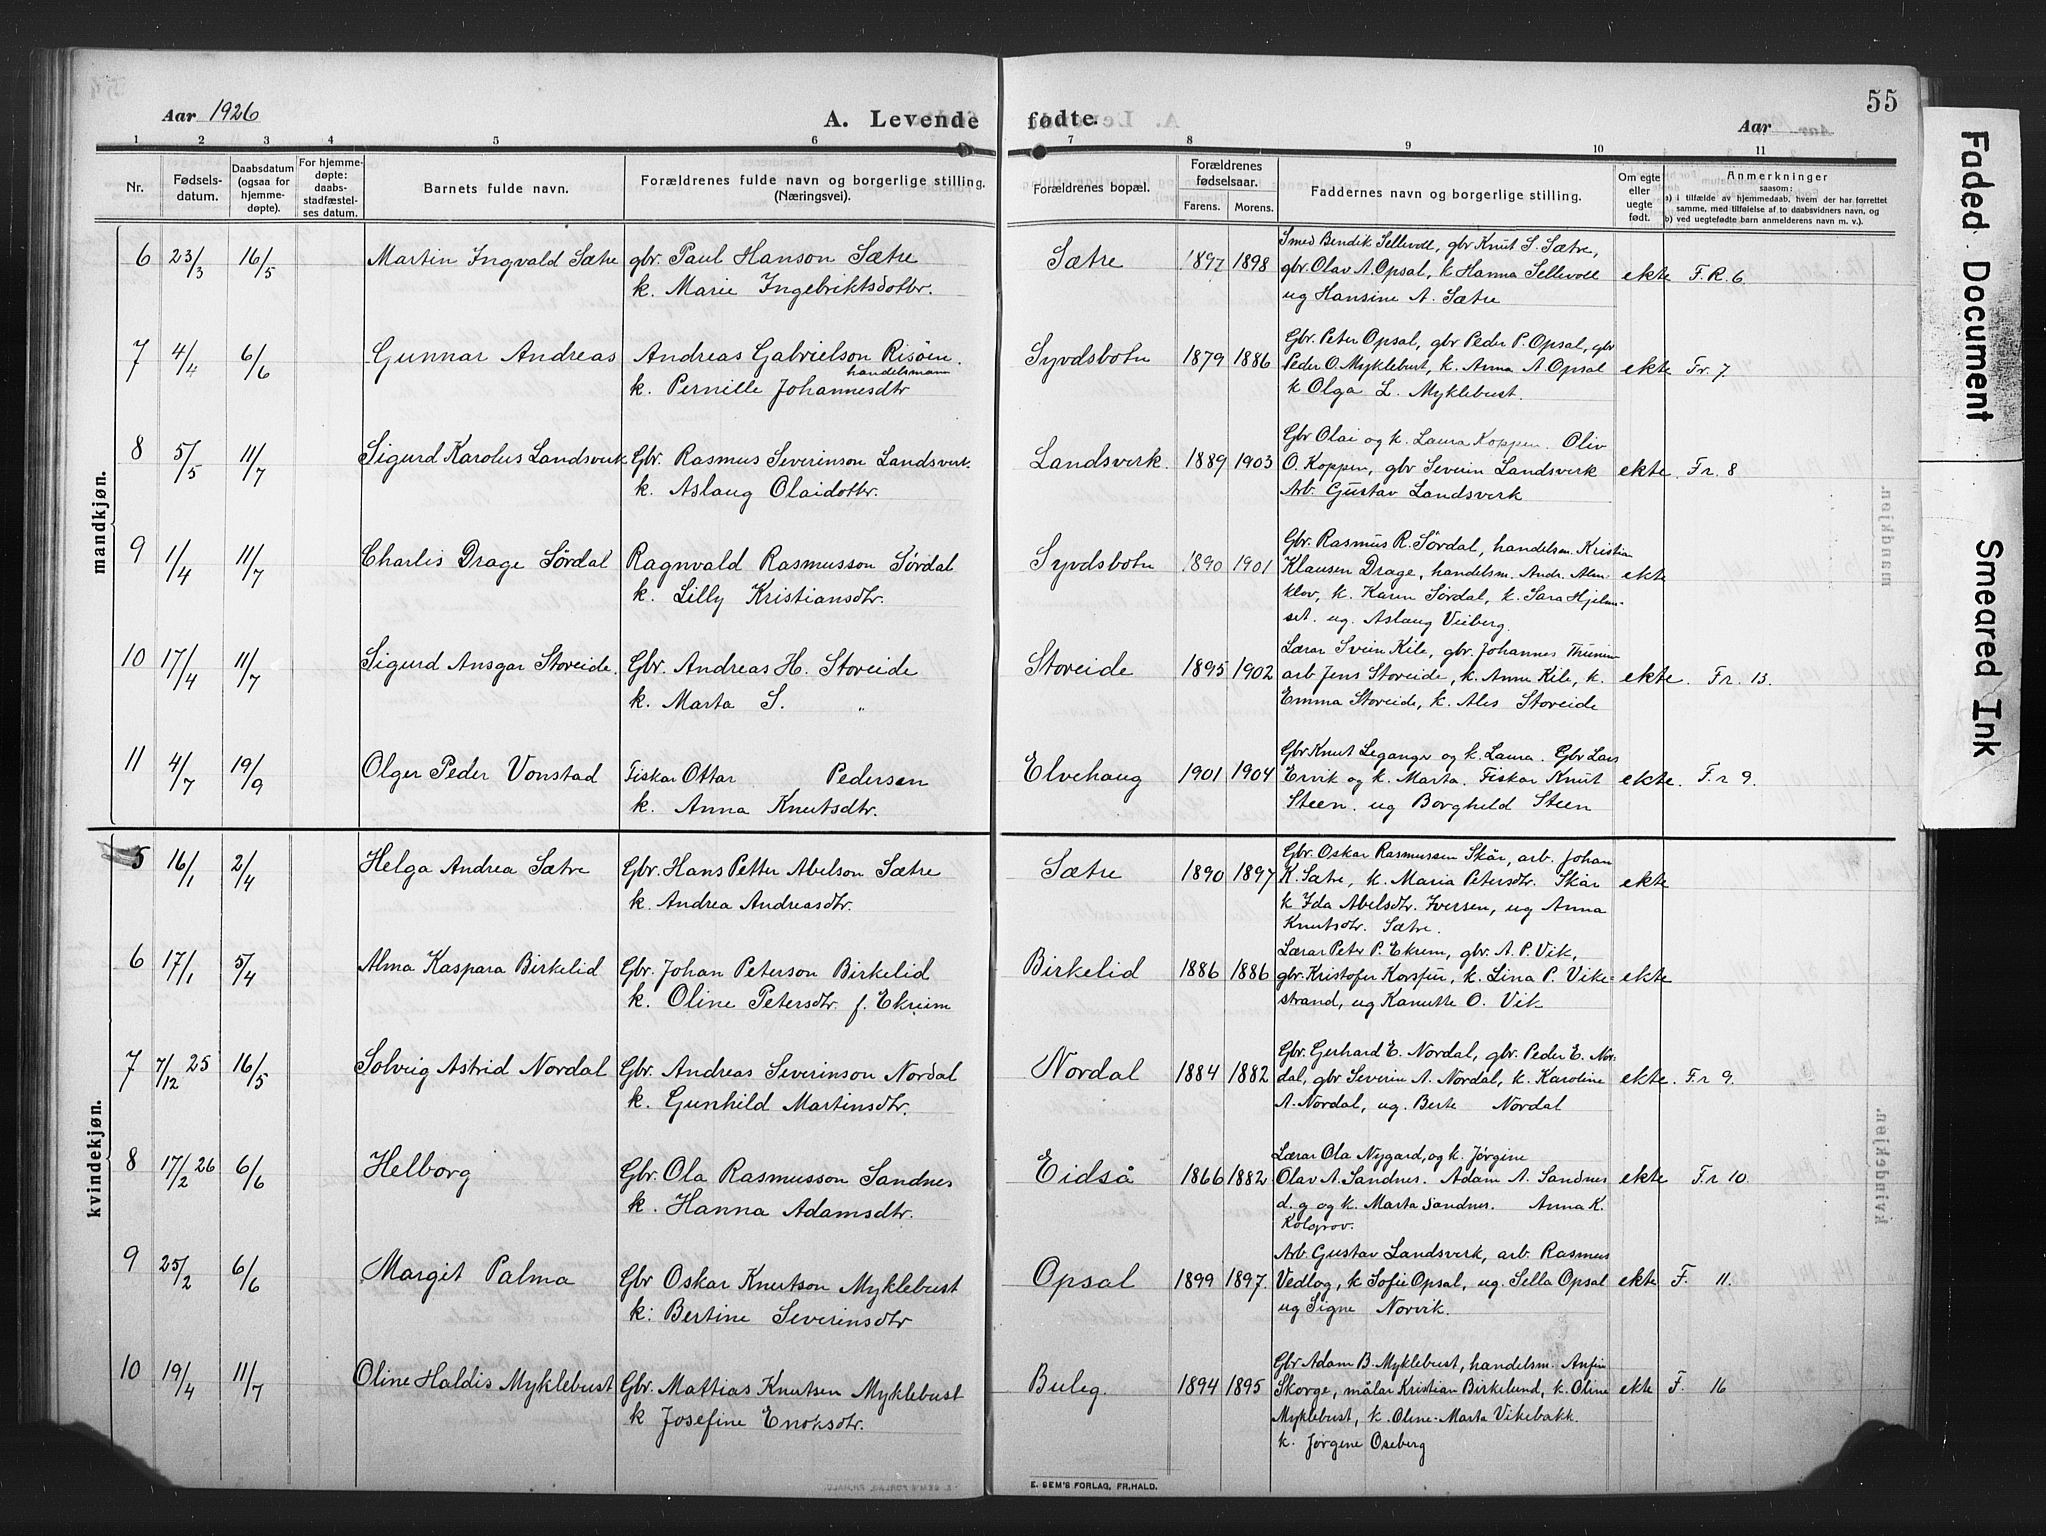 Aar 1926
A. Levende fødte.
Aar
55
1 2 3 4 5 6 7 8 9 10 11
Nr.
Fødsels-
datum.
Daabsdatum
(ogsaa for
hjemme-
døpte).
For hjemme-
døpte:
daabs-
stadfæstel-
ses datum.
Barnets fulde navn.
Forældrenes fulde navn og borgerlige stilling.
(Næringsvei).
Forældrenes bopæl.
Forældrenes
fødselsaar.
Farens. Morens.
Faddernes navn og borgerlige stilling.
Om egte
eller
uegte
født.
Anmerkninger
saasom:
a) i tilfælde av hjemmedaab, hvem der har forrettet
samme, med tilføielse af to daabsvidners navn, og
b) ved uegtefødte barn anmelderens navn m. v.).
mandkjøn.
6 23/3 16/5 Martin Ingvald Sætre
gbr. Paul Hanson Sætre
k. Marie Ingebriktsdottr.
Sætre 1897 1898
Smed Bendik Sellevoll, gbr Knut S. Sætre,
gbr. Olav A. Opsal, k. Hanna Sellevoll
ug Hansine A. Sætre
ekte F.R. 6.
7 4/4 6/6 Gunnar Andreas
Andreas Gabrielson Risøen.
handelsmann
k. Pernille Johannesdtr
Syvdsbotn 1879 1886
Gbr. Peter Opsal, gbr Peder P. Opsal, gbr
Peder O. Myklebust, k. Anna A Opsal
k Olga L. Myklebust.
ekte Fr. 7.
8 5/5 11/7 Sigurd Karolus Landsverk
Gbr. Rasmus Severinson Landsverk.
k. Aslaug Olaidottr.
Landsverk. 1889 1903
Gbr Olai og k. Laura Koppen. Oliv
O. Koppen, gbr Severin Landsverk
Arb. Gustav Landsverk
ekte Fr. 8
9 1/4 11/7 Charlis Drage Sørdal
Ragnvald Rasmusson Sørdal
k. Lilly Kristiansdtr.
Syvdsbotn 1890 1901
Gbr. Rasmus R. Sørdal, handelsm. Kristian
Klausen Drage, handelsm. Andr. Alm-
klov, k. Karen Sørdal, k. Sara Hjelme-
set. ug. Aslaug Veiberg.
ekte
10 17/4 11/7 Sigurd Ansgar Storeide.
Gbr. Andreas H. Storeide
k. Marta S. "
Storeide 1895 1902
Lærar Svein Kile, gbr. Johannes
arb Jens Storeide, k. Anne Kile, k.
Emma Storeide, k. Ales Storeide
ekte. Fr. 13.
11 4/7 19/9 Olger Peder Vonstad
Fiskar Ottar Pedersen
k. Anna Knutsdtr.
Elvehaug 1901 1904
Gbr Knut Leganger og k. Laura. Gbr Lars
Ervik og k. Marta. Fiskar Knut
Steen. ug Borghild Steen
ekte. F.r 9.
kvindekjøn.
5 16/1 2/4 Helga Andrea Sætre
Gbr. Hans Petter Abelson Sætre
k. Andrea Andreasdtr.
Sætre 1890 1897
Gbr. Oskar Rasmussen Skår, arb. Johan
K. Sætre, k. Maria Petersdtr. Skår
k Ida Abelsdtr. Iversen, ug Anna
Knutsdtr. Sætre.
ekte
6 17/1 5/4 Alma Kaspara Birkelid
Gbr. Johan Peterson Birkelid
k. Oline Petersdtr. f. Ekrem
Birkelid 1886 1886
Lærar Peter P. Ekrem, gbr. A. P. Vik,
gbr. Kristofer Korsfur, k. Lina P. Vike-
strand, ug Kanutte O. Vik
ekte
7 7/12 25 16/5 Solveig Astrid Nordal
Gbr. Andreas Severinson Nordal
k. Gunhild Martinsdtr.
Nordal 1884 1882
Gbr. Gerhard E. Nordal, gbr. Peder E. Nor-
dal, gbr Severin A. Nordal, k. Karoline
A. Nordal, ug. Berte Nordal
ekte. F.r 9.
8 17/2 26 6/6 Helborg
Gbr. Ola Rasmusson Sandnes
k. Hanna Adamsdtr.
Eidså 1866 1882
Lærar Ola Nygard, og k. Jørgine
Olav A. Sandnes. Adam A. Sandnes
d. g og k. Marta Sandnes. Anna K.
Kolgrov.
ekte F.r 10.
9 25/2 6/6 Margit Palma
Gbr Oskar Knutson Myklebust
k: Bertine Severinsdtr
Opsal 1899 1897.
Arb. Gustav Landsverk, arb. Rasmus
Vedlog, k Sofie Opsal, ug. Sella Opsal
ug Signe Norvik.
ekte F. 11.
10 19/4 11/7 Oline Haldis Myklebust
Gbr. Mattias Knutsen Myklebust
k Josefine Enoksdtr.
Buleg. 1894 1895
Gbr Adam B. Myklebust, handelsm. Anfin
Skorge, målar Kristian Birkelund, k. Oline
Myklebust, k. Oline-Marta Vikebakk.
k. Jørgene Oseberg
ekte F. 16
E. SEM'S FORLAG, FR.HALD.
Faded Document
Smeared Ink